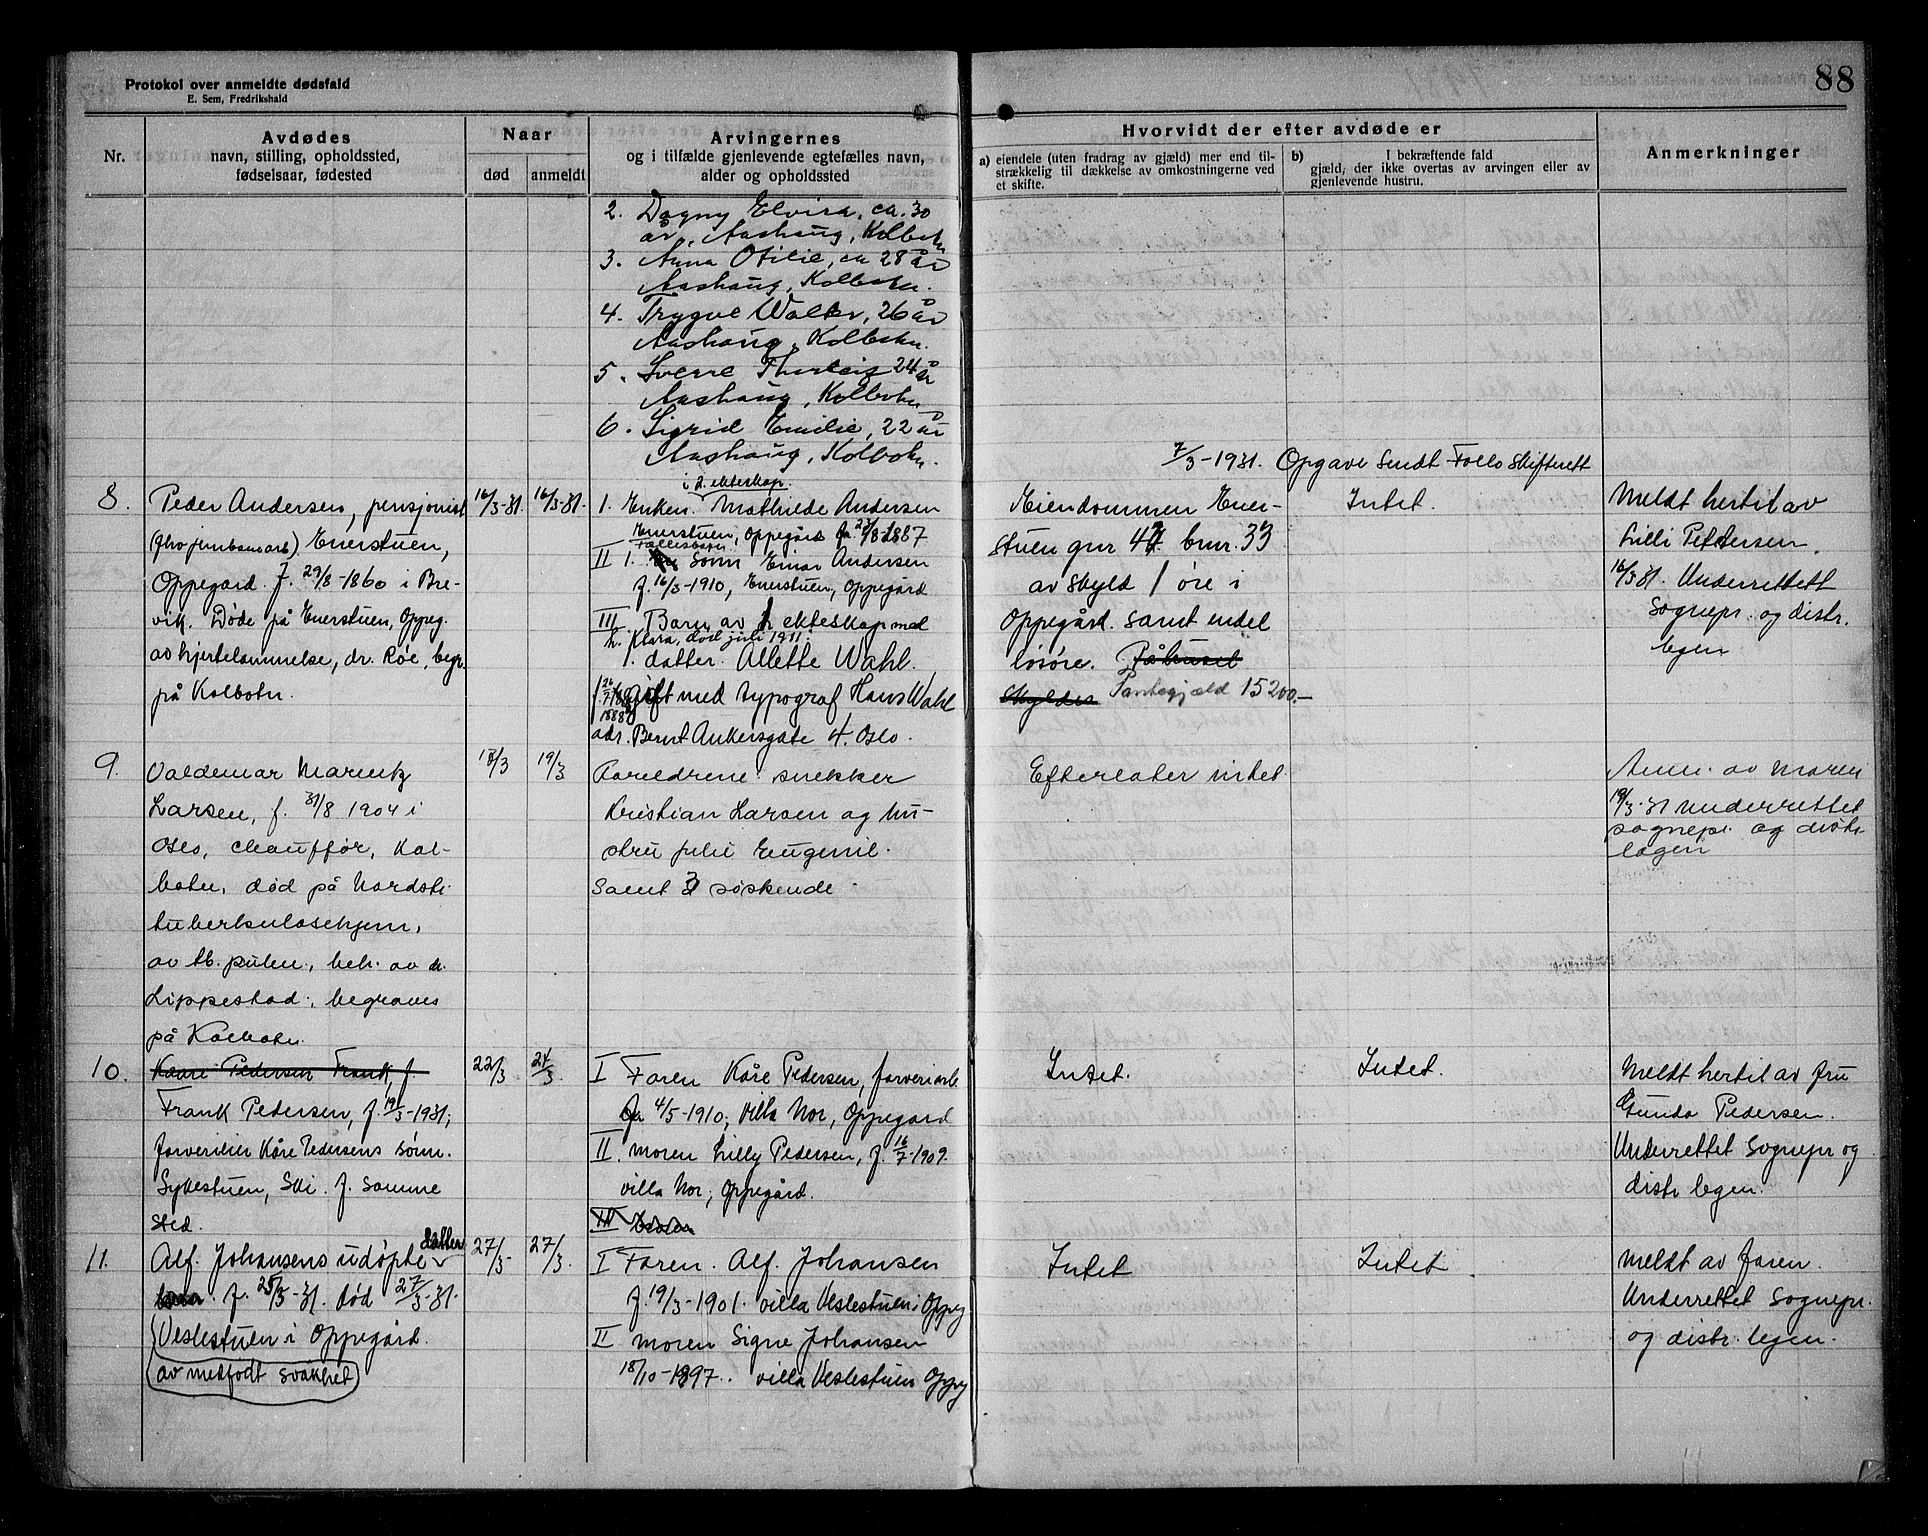 Protokol over anmeldte dødsfald
E. Sem, Fredrikshald
88
Nr.
Avdødes
navn, stilling, opholdssted,
fødselsaar, fødested
Naar
død
anmeldt
Arvingernes
og i tilfælde gjenlevende egtefælles navn,
alder og opholdssted
Hvorvidt der efter avdøde er
a) eiendele (uten fradrag av gjæld) mer end til-
strækkelig til dækkelse av omkostningerne ved
et skifte.
b) I bekræftende fald
gjæld, der ikke overtas av arvingen eller av
gjenlevende hustru.
Anmerkninger
2. Dagny Elvira, ca. 30
år, Aashaug, Kolbotn
3. Anna Otilie, ca 28 år
Aashaug, Kolbotn.
4. Trygve Walter, 26 år
Aashaug, Kolbotn.
5. Sverre Thorleig 24 år
Aashaug, Kolbotn
6. Sigrid Emilie, 22 år
Aashaug, Kolbotn.
7/3-1931. Opgave sendt Follo Skifterett
8.
Peder Andersen, pensjonist
(fhv jernbanearb). Enerstuen,
Oppegård. f. 29/8-1860 i Bre-
vik. Døde på Enerstuen, Oppeg.
av hjertelammelse, dr. Røe, begr.
på Kolbotn.
16/3-31.
16/3-31.
i 2. ekteskap.
1. Enken. Mathilde Andersen
Enerstuen, Oppegård fa 23/3 1887
Fællesbarn:
II 1. Sønn Einar Andersen
f. 16/3-1910, Enerstuen, Oppegård
III Barn av 1 ekteskap med
h. Klara, død juli 1911:
1. datter. Allette Wahl.
gift med typograf Hans Wahl
adr. Bernt Ankersgate 4. Oslo.
Eiendommen Ener-
stuen gnr 42 bnr. 33
av skyld 1 øre i
Oppegård. samt endel
løsøre. På huset
skyldes Pantegjæld 15200.-
Intet.
Meldt hertil av
Lilli Pettersen.
16/3 31. Underrettett
Sognepr. og distr.
legen
9.
Valdemar Marentz
Larsen, f. 31/8 1904 i
Oslo, chauffør, Kol-
botn, død på Nordst.
tuberkulosehjem,
av tb. pulm., beh. av dr.
Lippestad, begraves
på Kolbotn.
18/3
19/3
Foreldrene: snekker
Kristian Larsen og hu-
stru Julie Eugenie.
samt 3 søskende.
Efterlater intet
Anm. av moren
19/3-31 Underrettet
sognepr. og distr.
legen
10.
Kaare Pedersen Frank, f.
Frank Pedersen, f. 19/3-1931;
farveriarb. Kåre Pedersens sønn.
Sykestuen, Ski. f. samme
sted.
22/3
24/3.
I Faren Kåre Pedersen, farveriarb.
fa 4/5-1910; Villa Nor, Oppegård
II. moren Lilly Pedersen, f. 16/7-1909.
villa Nor, Oppegård.
III
Intet.
Intet.
Meldt hertil av fru
Gunda Pedersen.
Underrettet Sognepr og
distr legen.
11.
Alf. Johansens udøpte datter
f. 25/3-31. død 27/3-31.
Veslestuen i Oppegård.
av medfødt svakhet
27/3-
27/3.
I Faren. Alf. Johansen
f. 19/3-1901. villa Veslestuen i Oppeg
II moren Signe Johansen
18/10-1897.. villa Veslestuen Oppeg
Intet
Intet
Meldt av faren.
Underrettet Sognepr.
og distr. legen.